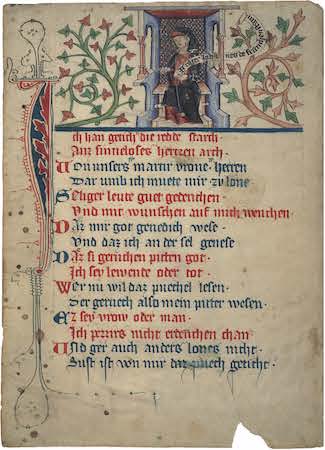 Ich han die rede starch ·
Auz sinneloses hertzen arch ·
Von unsers martir vrone herren
Dar umb ich muete mir zu lone
Seliger leute guet gedenchen ·
Vnd mit wunschen auf mich wenchen ·
Daz mir got genedich wese ·
Vnd daz ich an der sel genese
Daz si geruchen pitten got ·
Ich sey lewende oder tot ·
Wer wil daz puechel lesen ·
Der geruech also mein pitter wesen ·
Ez sey vrow oder man ·
Ich pezzers nicht erdenchen chan
Vnd ger auch anders lones nicht ·
Sust ist von mir daz puech geticht ·